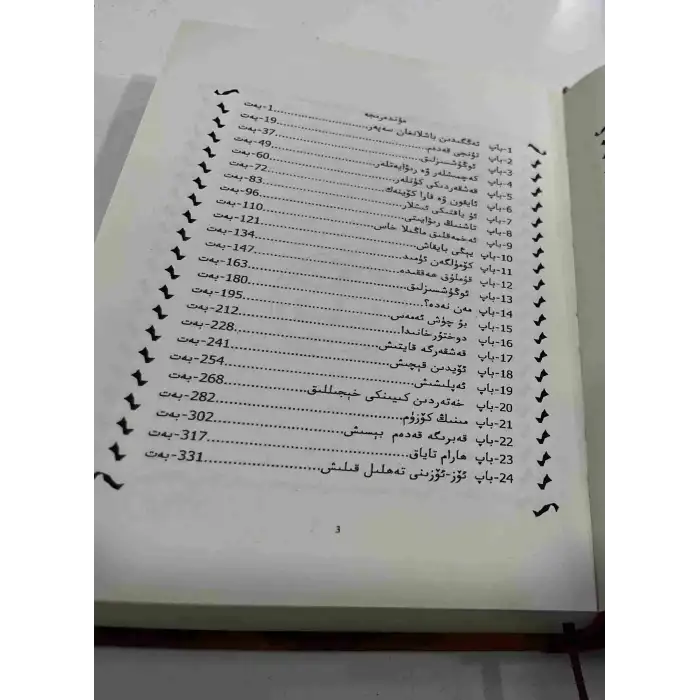 مۇندەرىجە
1-باپ ئەڭگىدىن باشلانغان سەپەر..................1-بەت
2-باپ تۇنجى قەدەم..................19-بەت
3-باپ ئوڭۇشسىزلىق..................37-بەت
4-باپ كەچمىشلەر ۋە رىۋايەتلەر..................49-بەت
5-باپ قەشقەردىكى كۈنلەر..................60-بەت
6-باپ ئايفون ۋە قارا كۆينەك..................72-بەت
7-باپ ئۇ ياقتىكى ئىشلار..................83-بەت
8-باپ تاشنىڭ رىۋايىتى..................96-بەت
9-باپ ئەخمەقلىق ماڭىلا خاس..................110-بەت
10-باپ يېڭى بايقاش..................121-بەت
11-باپ كۆمۈلگەن ئۈمىد..................134-بەت
12-باپ قۇملۇق ھەققىدە..................147-بەت
13-باپ ئوڭۇشسىزلىق..................163-بەت
14-باپ مەن نەدە؟..................180-بەت
15-باپ بۇ چۈش ئەمەس..................195-بەت
16-باپ دوختۇرخانىدا..................212-بەت
17-باپ قەشقەرگە قايتىش..................228-بەت
18-باپ ئۆيدىن قېچىش..................241-بەت
19-باپ ئەپلىشىش..................254-بەت
20-باپ خەتەردىن كىيىنكى خېجىللىق..................268-بەت
21-باپ مىنىڭ كۆزۈم..................282-بەت
22-باپ قەبرىگە قەدەم بېسىش..................302-بەت
23-باپ ھارام تاياق..................317-بەت
24-باپ ئۆز-ئۆزىنى تەھلىل قىلىش..................331-بەت
3